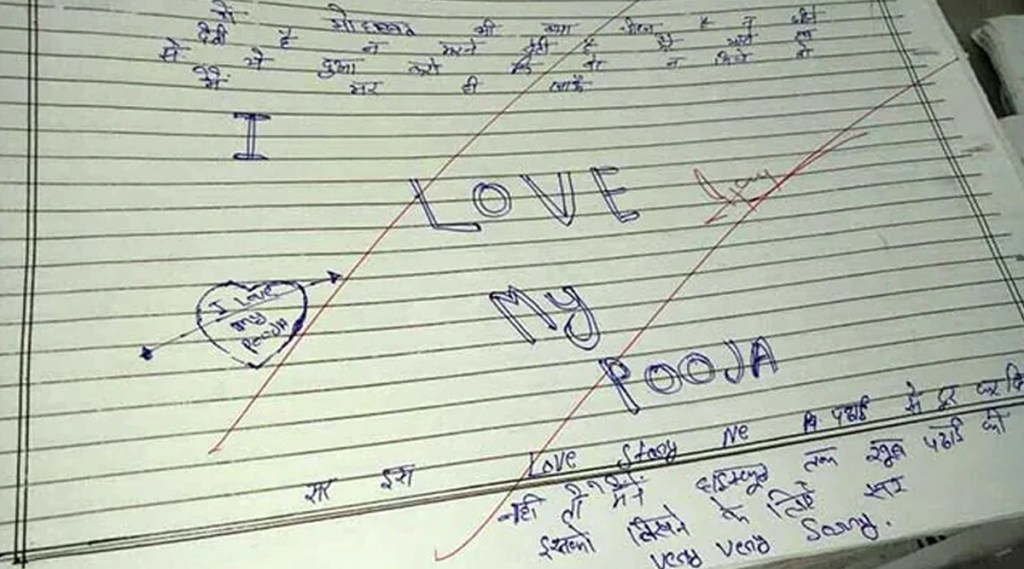 ये मोहब्बत भी क्या चीज है न जीने
देती है न मरने देती है
दुआ करो कि वो न मिले तो
मैं मर ही जाऊँ
I
LOVE
I Love
my
Pooja
My
POOJA
सर इस Love Story Ne पढाई से दूर कर दि
नही तो मैने हाईस्कूल तक खूब पढाई की
इसको लिखने के लिऐ सर
very very Sorry.